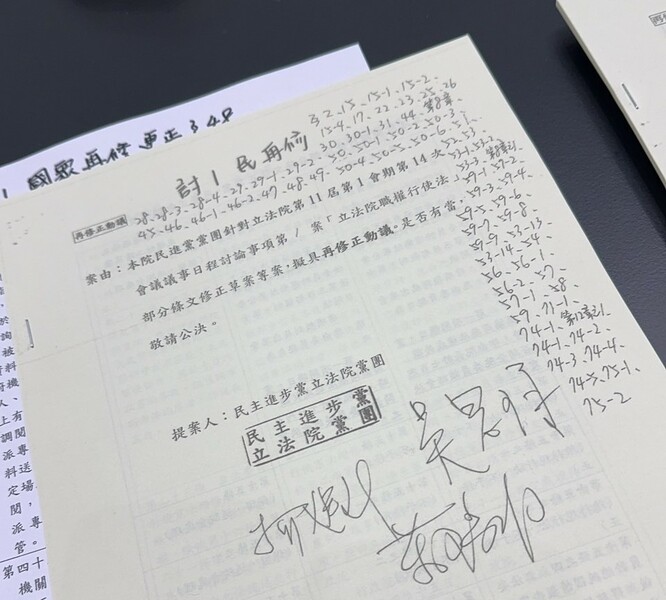 國眾再修更正 3、48
討1 民再修
2、15、15-1、15-2、
15-4、17、22、23、25、26
30、30-1、31、44、第8章、
28、28-3、28-4、29、29-1、29-2、50、50-1、50-2、50-3、
45、46、46-1、46-2、47、48、49、50-4、50-5、50-6、51、
52、53
53-1、53-2
53-3、
59-1、59-2
59-3、59-4
59-5、59-6、
59-7、59-8
59-9、53-13、
53-14、54、
56、56-1、
56-2、57、
57-1、58
59、71-1、
74-1、
74-1、74-2、
74-3、74-4、
74-5、75-1、
75-2
再修正動議
案由：本院民進黨黨團針對立法院第11屆第1會期第14次
會議議事日程討論事項第1案「立法院職權行使法」
部分條文修正草案等案，擬具再修正動議。是否有當，
敬請公決。
提案人：民主進步黨立法院黨團
民主進步黨
立法院黨團
吳思瑤
柯建銘
莊瑞雄
料送
定場
閱，
派專
管。
第四十
機關